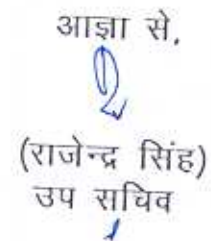 आज्ञा से,
(राजेन्द्र सिंह)
उप सचिव